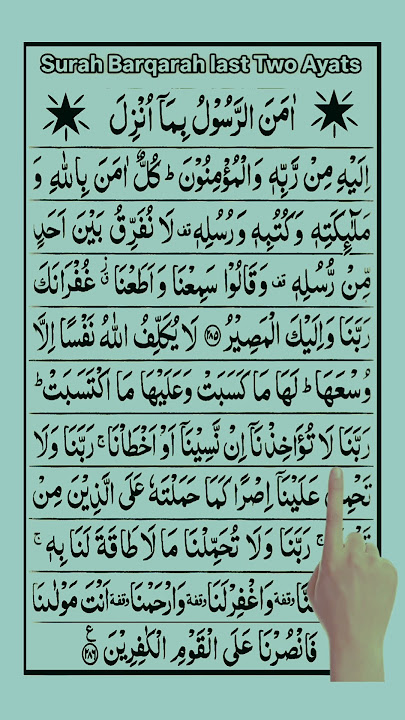 Surah Barqarah last Two Ayats
اٰمَنَ الرَّسُوْلُ بِمَاۤ اُنْزِلَ
اِلَيْهِ مِنْ رَّبِّهٖ وَالْمُؤْمِنُوْنَ ؕ كُلٌّ اٰمَنَ بِاللّٰهِ وَ
مَلٰٓئِكَتِهٖ وَكُتُبِهٖ وَرُسُلِهٖ ۫ لَا نُفَرِّقُ بَيْنَ اَحَدٍ
مِّنْ رُّسُلِهٖ ۫ وَقَالُوْا سَمِعْنَا وَاَطَعْنَا ۫ غُفْرَانَكَ
رَبَّنَا وَاِلَيْكَ الْمَصِيْرُ ﴿۲۸۵﴾ لَا يُكَلِّفُ اللّٰهُ نَفْسًا اِلَّا
وُسْعَهَا ؕ لَهَا مَا كَسَبَتْ وَعَلَيْهَا مَا اكْتَسَبَتْ ؕ
رَبَّنَا لَا تُؤَاخِذْنَاۤ اِنْ نَّسِيْنَاۤ اَوْ اَخْطَاْنَا ۚ رَبَّنَا وَلَا
عَلَيْنَاۤ اِصْرًا كَمَا حَمَلْتَهٗ عَلَى الَّذِيْنَ مِنْ
رَبَّنَا وَلَا تُحَمِّلْنَا مَا لَا طَاقَةَ لَنَا بِهٖ ۚ
وقفة وَاغْفِرْ لَنَا وقفة وَارْحَمْنَا وقفة اَنْتَ مَوْلٰىنَا
فَانْصُرْنَا عَلَى الْقَوْمِ الْكٰفِرِيْنَ ﴿۲۸۶﴾ ع